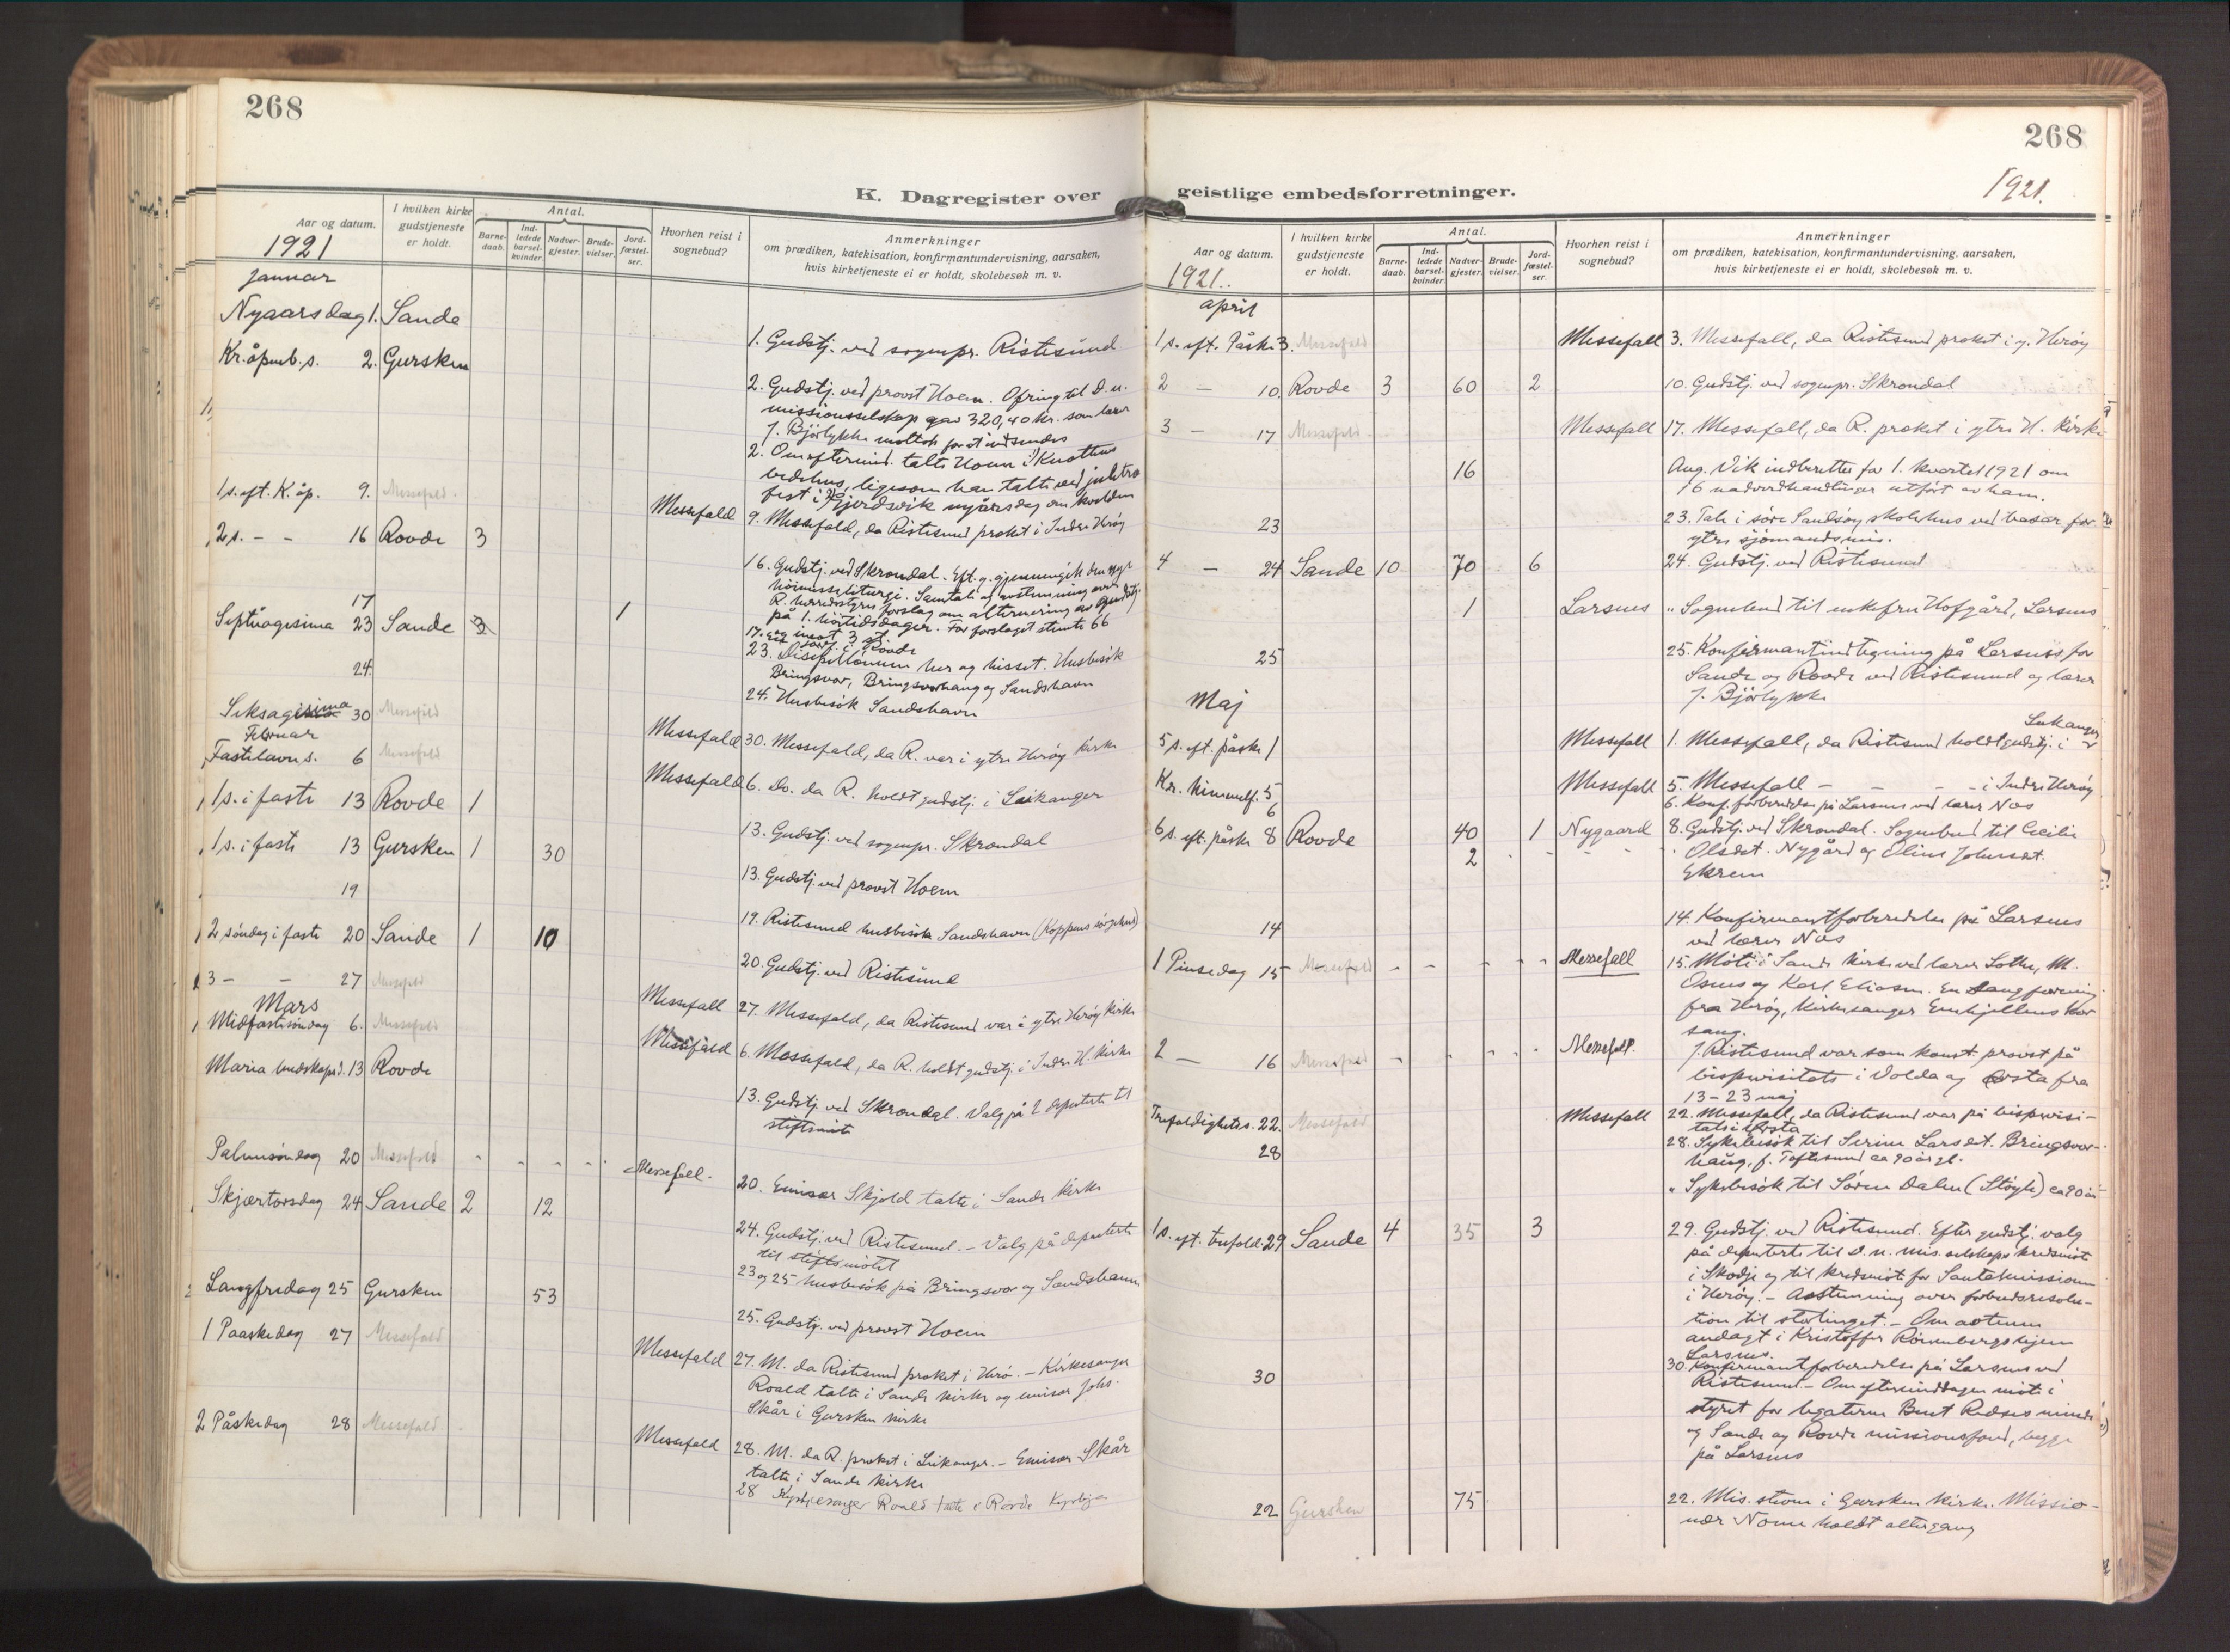 268
K. Dagregister over
Aar og datum.
I hvilken kirke gudstjeneste er holdt.
Antal.
Barne-daab.
Ind-ledede barsel-kvinder.
Nadver-gjester.
Brude-vielser.
Jord-fæstel-ser.
Hvorhen reist i sognebud?
Anmerkninger
om prædiken, katekisation, konfirmantundervisning, aarsaken,
hvis kirketjeneste ei er holdt, skolebesøk m. v.
1921
Januar
Nyaarsdag 1. Sande
1. Gudstj. ved sognepr. Ristesund
Kr. åpenb. s. 2. Gursken
2. Gudstj. ved provst Hoem. Ofring til D. n.
missionsselskap gav 320,40 kr. som lærer
J. Bjørlykke mottok for at indsendes
2. Om eftermid. talte Hoem i Knotten
bedehus, ligesom han talte ved juletre
fest i Gjerdsvik nyårsdag om kvelden
1 s. eft. K. åp. 9. Messefald. Messefald
9. Messefald, da Ristesund præket i Indre Herøy
2 s. - - 16 Rovde 3
16. Gudstj. ved Skrondal. Eft. g. gjennemgik den nye
høimesseliturgi. Samtale og avstemning over
R. herredsstyres forslag om alternering av gudstj.
på 1. høitidsdager. For forslaget stemte 66
og imot 3 st.
17 1
17. jordf. i Rovde
Septuagesima 23 Sande 3
23. Diseptlömmer her og hisset. Husbesøk
Bringsvor, Bringsvorhaug og Sandshavn
24.
24. Husbesøk Sandshavn
Seksagesima 30 Messefald Messefald
30. Messefald, da R. var i ytre Herøy kirke
Februar
Fastelavns. 6 Messefald Messefald
6. Do. da R. holdt gudstj. i Leikanger
1 s. i faste 13 Rovde 1
13. Gudstj. ved sognepr. Skrondal
1 s. i faste 13 Gursken 1 30
13. Gudstj. ved provst Hoem
19
19. Ristesund husbesøk Sandshavn
2 søndag i faste 20 Sande 1 10
20. Gudstj. ved Ristesund
3 - - 27 Messefald Messefall
27. Messefald, da Ristesund var i ytre Herøy kirke
Mars
Midfastesøndag 6. Messefald Messefald
6. Messefald, da R. holdt gudstj. i Indre H. kirke
Maria budskapsd. 13 Rovde
13. Gudstj. ved Skrondal. Valg på 2 deputerte til
stiftsmøte
Palmesøndag 20 Messefald - - - - - Messefall.
20. Emissær Skjold talte i Sande kirke
Skjærtorsdag 24 Sande 2 12
24. Gudstj. ved Ristesund. - Valg på deputerte
til stiftsmøtet
23 og 25 husbesøk på Bringsvor og Sandshavn
Langfredag 25 Gursken 53
25. Gudstj. ved provst Hoem
1 Paaskedag 27 Messefald Messefald
27. M. da Ristesund præket i Herø. - Kirkesanger
Roald talte i Sande kirke og emissær Johs.
Skår i Gursken kirke
2 Påskedag 28 Messefald Messefald
28. M. da R. præket i Leikanger. - Emissær Skår
talte i Sande kirke
28 Kyrkjesongar Roald talte i Rovde Kyrkje
268
geistlige embedsforretninger.
1921.
Aar og datum.
I hvilken kirke gudstjeneste er holdt.
Antal.
Barne-daab.
Ind-ledede barsel-kvinder.
Nadver-gjester.
Brude-vielser.
Jord-fæstel-ser.
Hvorhen reist i sognebud?
Anmerkninger
om prædiken, katekisation, konfirmantundervisning, aarsaken,
hvis kirketjeneste ei er holdt, skolebesøk m. v.
1921.
April
1 s. eft. Påske 3. Messefald Messefall
3. Messefall, da Ristesund præket i y. Herøy
2 - 10. Rovde 3 60 2
10. Gudstj. ved sognepr. Skrondal
3 - 17 Messefald Messefall
17. Messefall, da R. præket i ytre H. kirke
16
Aug. Vik indberetter for 1. kvartal 1921 om
16 nadverdhandlinger utført av ham.
23
23. Tale i søre Sandsøy skolehus ved basar for
ytre sjømandsmis.
4 - 24 Sande 10 70 6
24. Gudstj. ved Ristesund
1 Larsnes
" Sognebud til enkefru Hofgård, Larsnes
25
25. Konfirmantindtegning på Larsnes for
Sande og Rovde ved Ristesund og lærer
J. Bjørlykke
Maj
5 s. eft. påske 1 Messefall
1. Messefall, da Ristesund holdt gudstj. i Leikanger
Kr. himmelf. 5 Messefall
5. Messefall - - - - i Indre Herøy
6
6. Konf. forberedelse på Larsnes ved lærer Nos
6 s. eft. påske 8 Rovde 40 1 Nygaard
8. Gudstj. ved Skrondal. Sognebud til Cecilie
2 - - - - -
Olsdat. Nygård og Oline Johnsdat.
Ekrem
14
14. Konfirmantforberedelse på Larsnes
ved lærer Nos
1 Pinsedag 15 Messefald - - - - - Messefall
15. Møte i Sande kirke ved lærer Sothe, M.
Osnes og Karl Eliasen. En sangforening
fra Herøy, kirkesanger Emhjellens kor
sang.
2 - 16 Messefald - - - - - Messefall.
J. Ristesund var som konst. provst på
bispevisitats i Volda og Ørsta fra
13-23 maj
Trefoldighetss. 22. Messefald Messefall
22. Messefall, da Ristesund var på bispevisi-
tats i Ørsta
28
28. Sykebesøk til Serine Larsdat. Bringsvor-
haug, f. Toftesund ca 90 år gl.
" Sykebesøk til Søren Dalen (Støyle) ca 90 år
1 s. eft. trefold. 29 Sande 4 35 3
29. Gudstj. ved Ristesund. Efter gudstj. valg
på deputerte til D. n. mis. selskaps kredsmøte
i Skodje og til kredsmøte for Santalmissionen
i Herøy. - Avstemning over forbudsresolu-
tion til stortinget. - Om aftenen
andagt i Kristoffer Rønnebergs hjem
Larsnes.
30
30. Konfirmantforberedelse på Larsnes ved
Ristesund. - Om eftermiddagen møte i
styret for legaterne Bent Rødses minde
og Sande og Rovde missionsfond, begge
på Larsnes
22 Gursken 75
22. Mis. stevne i Gursken kirke. Missio-
nær Nome holdt altergang